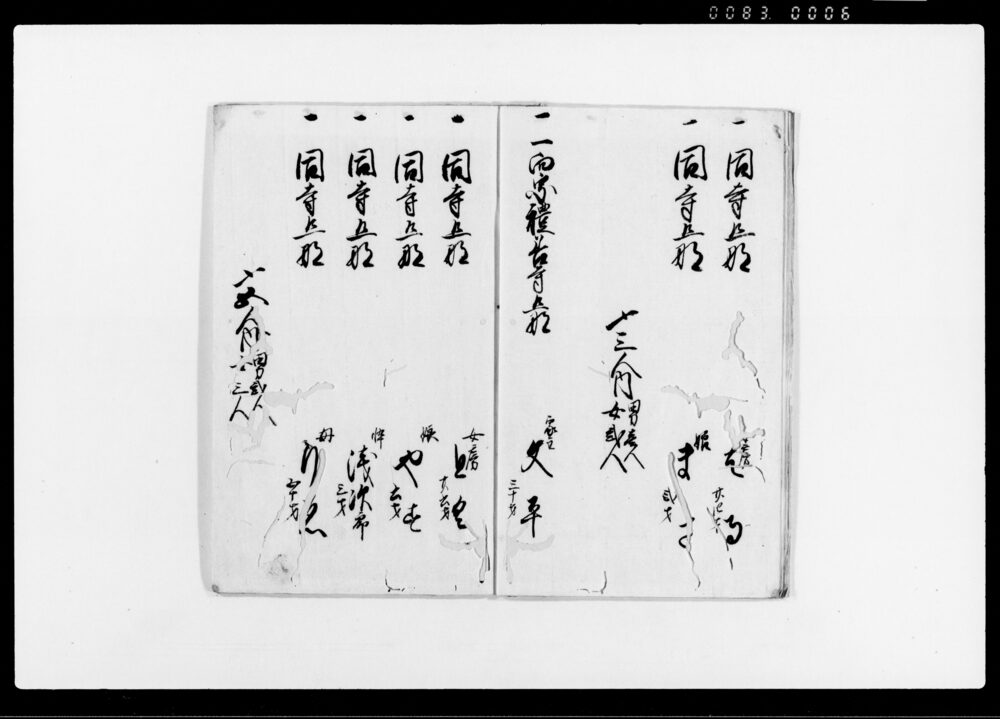 0083. 0006
一 同寺旦那 女房
一 同寺旦那 娘 弐才
〆三人内 男壱人 女弐人
一 一向宗禮善寺旦那 家主 文平 三十才
一 同寺旦那 女房 廿六才
一 同寺旦那 娘 やす 六才
一 同寺旦那 忰 浅次郎 三才
一 同寺旦那 母
〆五人内 男弐人 女三人